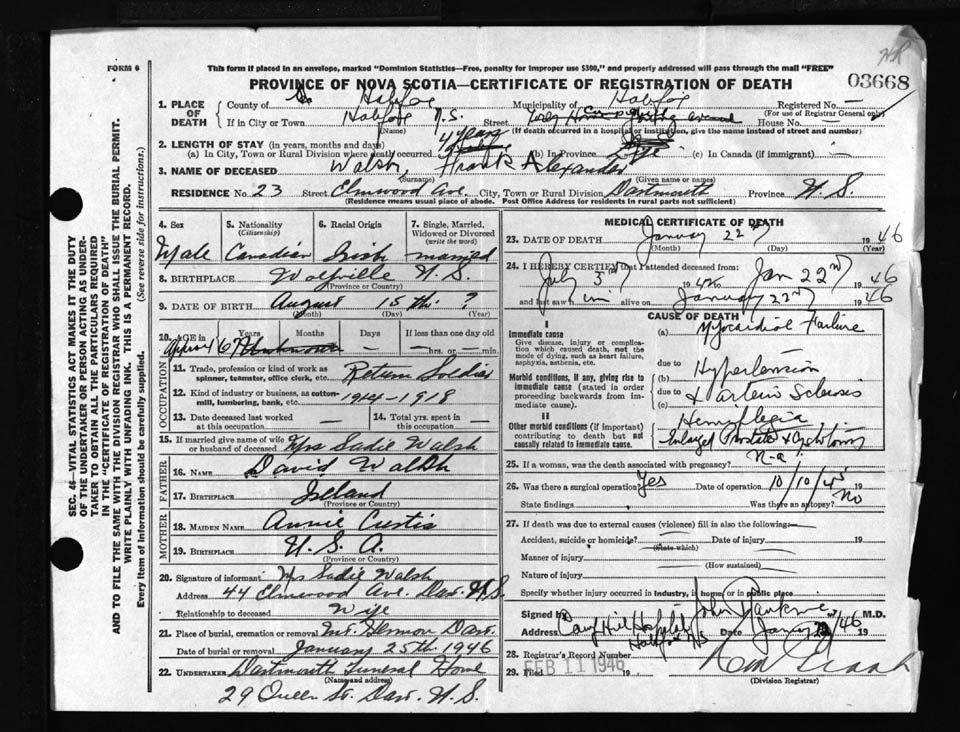 H.R
FORM 6
This form if placed in an envelope, marked "Dominion Statistics—Free, penalty for improper use $300," and properly addressed will pass through the mail "FREE"
03668
PROVINCE OF NOVA SCOTIA—CERTIFICATE OF REGISTRATION OF DEATH
1. PLACE OF DEATH
County of Halifax Municipality of Halifax Registered No. —
(For use of Registrar General only)
If in City or Town Halifax N.S. Street House No. —
(Name) (If death occurred in a hospital or institution, give the name instead of street and number)
2. LENGTH OF STAY (in years, months and days)
(a) In City, Town or Rural Division where death occurred 4 years (b) In Province Life (c) In Canada (if immigrant) —
3. NAME OF DECEASED Walsh, Frank Alexander
(Surname) (Given name or names)
RESIDENCE No. 23 Street Elmwood Ave. City, Town or Rural Division Dartmouth Province N.S.
(Residence means usual place of abode. Post Office Address for residents in rural parts not sufficient)
SEC. 46—VITAL STATISTICS ACT MAKES IT THE DUTY
OF THE UNDERTAKER OR PERSON ACTING AS UNDER-
TAKER TO OBTAIN ALL THE PARTICULARS REQUIRED
IN THE "CERTIFICATE OF REGISTRATION OF DEATH"
AND TO FILE THE SAME WITH THE DIVISION REGISTRAR WHO SHALL ISSUE THE BURIAL PERMIT.
WRITE PLAINLY WITH UNFADING INK. THIS IS A PERMANENT RECORD.
Every item of information should be carefully supplied. (See reverse side for instructions.)
4. Sex
Male
5. Nationality
(Citizenship)
Canadian
6. Racial Origin
Irish
7. Single, Married,
Widowed or Divorced
(write the word)
married
8. BIRTHPLACE Wolfville N.S.
(Province or Country)
9. DATE OF BIRTH August 15th. ?
(Month) (Day) (Year)
10. AGE in Years Months Days If less than one day old
Approx 67 Unknown — — hrs. or — min.
OCCUPATION
11. Trade, profession or kind of work as
spinner, teamster, office clerk, etc. Return Soldier
12. Kind of industry or business, as cotton-
mill, lumbering, bank, etc. 1914-1918
13. Date deceased last worked
at this occupation —
14. Total yrs. spent in
this occupation —
15. If married give name of wife
or husband of deceased Mrs Sadie Walsh
FATHER
16. NAME David Walsh
17. BIRTHPLACE Ireland
(Province or Country)
MOTHER
18. MAIDEN NAME Annie Curtis
19. BIRTHPLACE U.S.A.
(Province or Country)
20. Signature of informant Mrs Sadie Walsh
Address 44 Elmwood Ave. Dar. N.S.
Relationship to deceased Wife
21. Place of burial, cremation or removal Mt. Hermon Dart.
Date of burial or removal January 25th 1946
22. UNDERTAKER Dartmouth Funeral Home
(Name and address)
29 Queen St. Dart. N.S.
MEDICAL CERTIFICATE OF DEATH
23. DATE OF DEATH January 22nd 1946
(Month) (Day) (Year)
24. I HEREBY CERTIFY that I attended deceased from:
July 3rd 1942 to Jan 22nd 1946
and last saw him alive on January 22nd 1946
CAUSE OF DEATH
I
Immediate cause
Give disease, injury or complica-
tion which caused death, not the
mode of dying, such as heart failure,
asphyxia, asthenia, etc.
(a) Myocardial Failure
due to
Morbid conditions, if any, giving rise to
immediate cause (stated in order
proceeding backwards from im-
mediate cause).
(b) Hypertension
due to
(c) Arterio Sclerosis
II
Other morbid conditions (if important)
contributing to death but not
causally related to immediate cause.
Hemiplegia
Enlarged Prostate & Cystotomy
25. If a woman, was the death associated with pregnancy? n-a
26. Was there a surgical operation? Yes Date of operation 10/10/45
State findings Was there an autopsy? No
27. If death was due to external causes (violence) fill in also the following:—
Accident, suicide or homicide? Date of injury 19
(State which)
Manner of injury
(How sustained)
Nature of injury
Specify whether injury occurred in industry, in home or in public place
Signed by John M.D.
Address Camp Hill Hospital Halifax NS Date Jan 22/46 19
28. Registrar's Record Number
29. Filed FEB 11 1946 19
(Division Registrar)